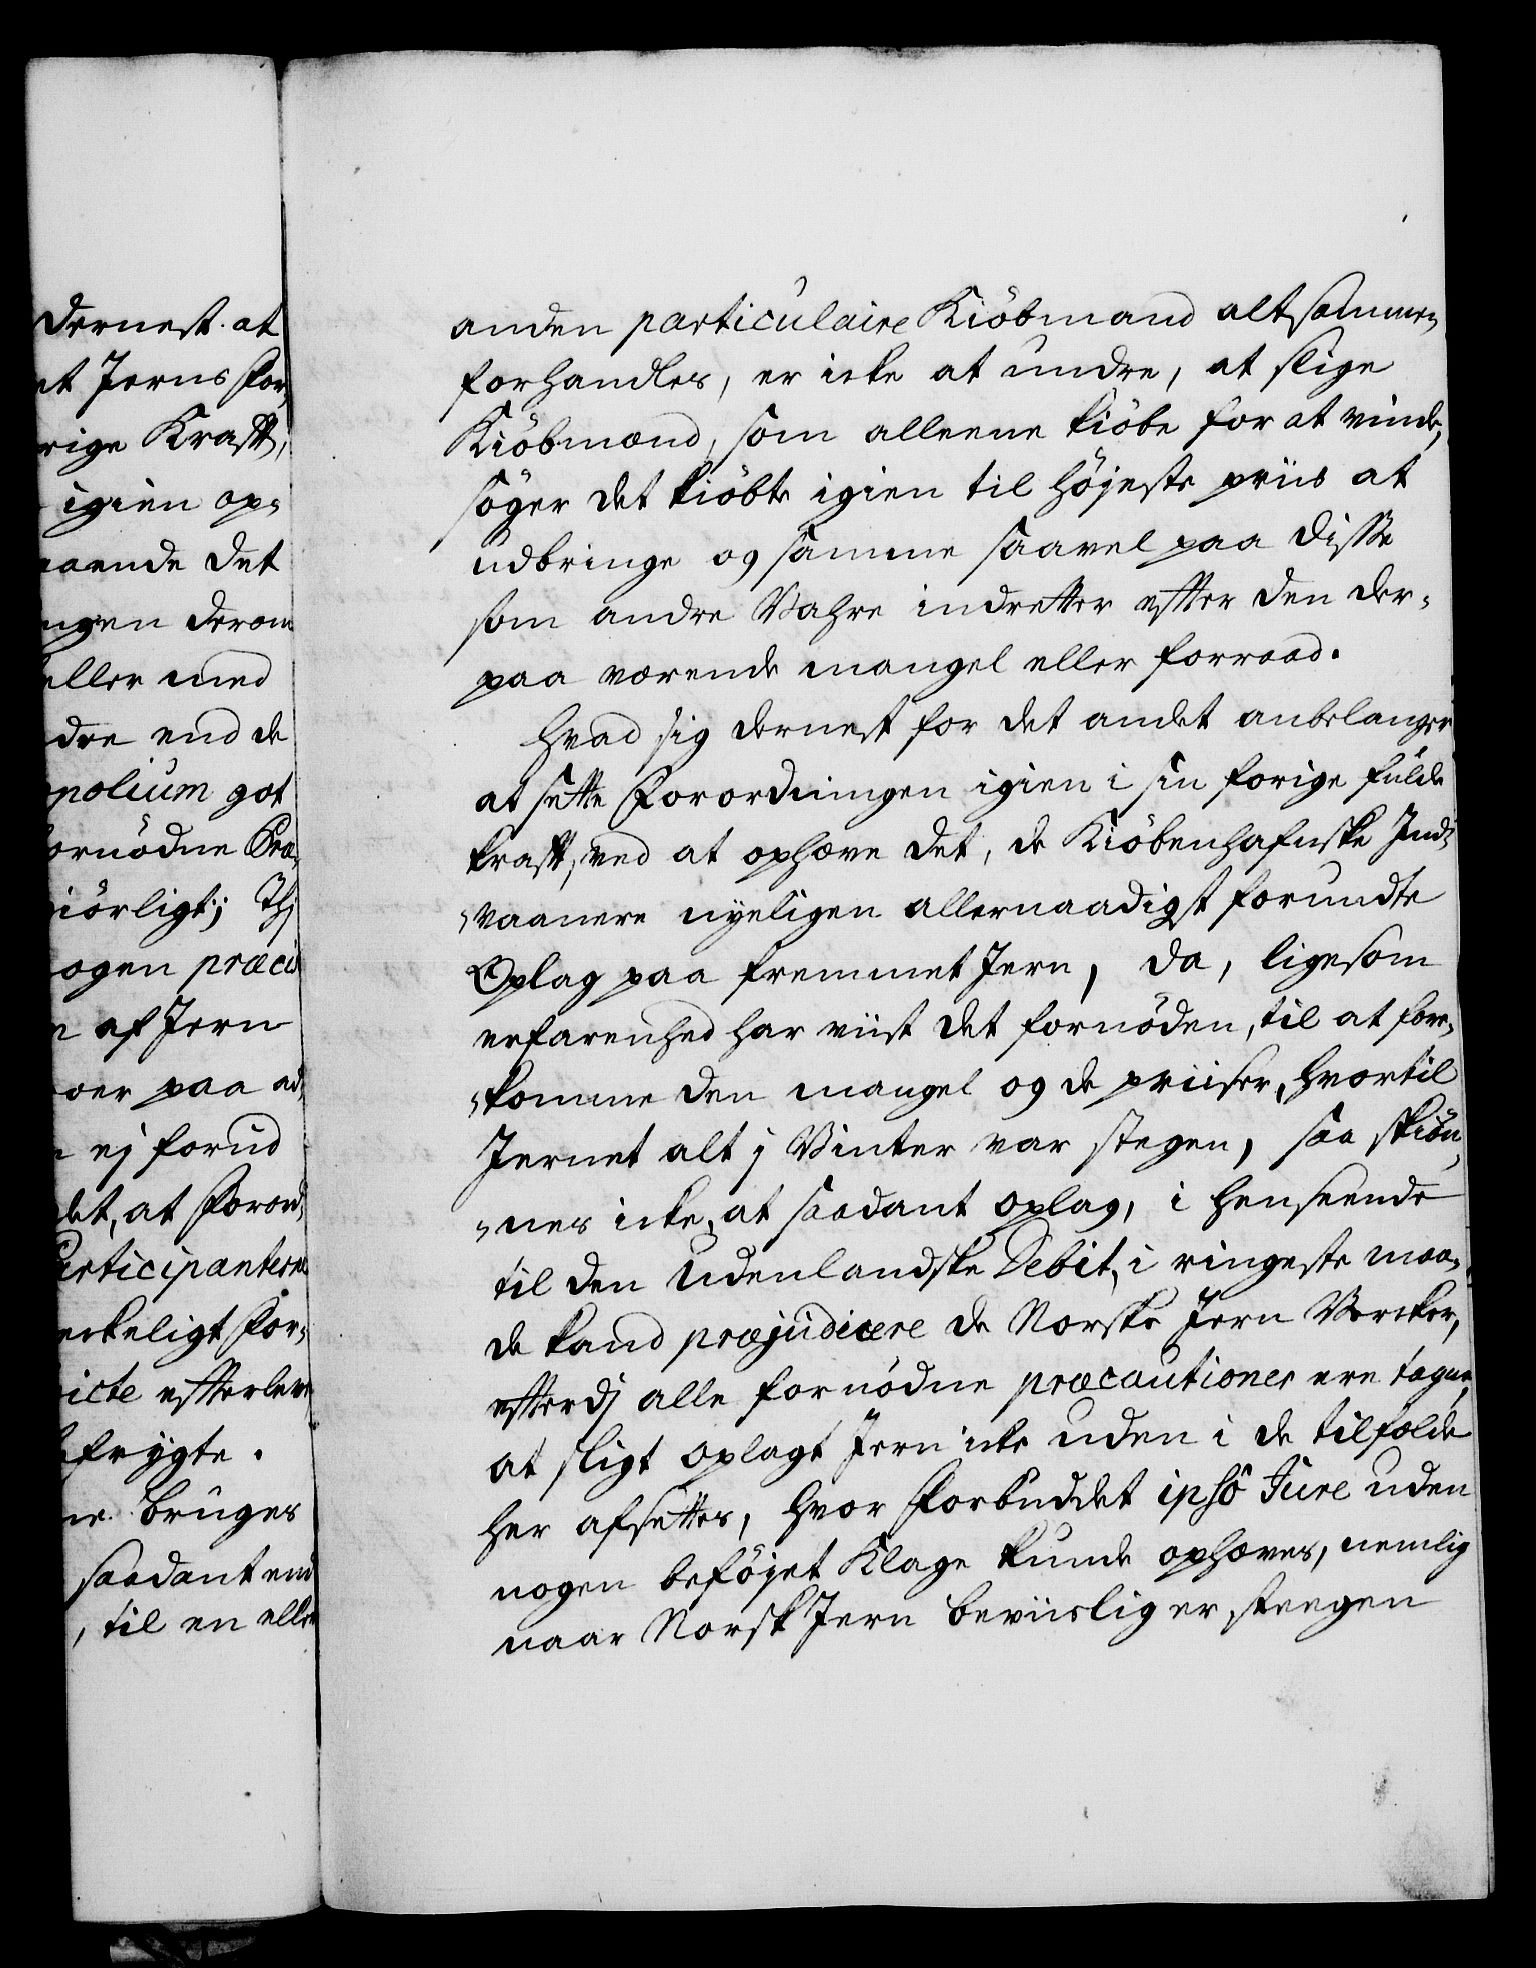 dernest at
et Jerns For,
rige Krafft,
igien op-
aaende det
ngen derom
eller med
dre end de
opolium got
ornödne Præ,
iörligt; Thj
ogen præcis
n af Jern
oer paa ad,
n ej forud
det, at Forord,
Participanterne
erkeligt For-
icte efterlev
frygte.
ne bruges
saadant end
, til en eller
anden particulaire Kiöbmand altsammen
forhandles, er icke at undre, at slige
Kiöbmænd, som alleene kiöbe for at vinde,
söger det kiöbte igien til höjeste priis at
udbringe og samme saavel paa disse
som andre Vahre indretter effter den der-
paa værende mangel eller forraad.
Hvad sig dernest for det andet anbelanger
at sette Forordningen igien i sin forige fulde
krafft, ved at ophæve det, de Kiöbenhafnske Ind-
-vaanere nyeligen allernaadigst forundte
Oplag paa fremmet Jern, da, ligesom
erfarenhed har viist det fornöden, til at fore-
-komme den mangel og de priiser, hvortil
Jernet alt j Vinter var stegen, saa skiön,
-nes icke, at saadant oplag, i henseende
til den Udenlandske Debit, i ringeste maa-
de kand præjudicere de Norske Jern Vercker,
effterdj alle fornödne præcautioner ere tagne,
at sligt oplagt Jern icke uden i de tilfælde
her afsettes, hvor Forbuddet ipso Jure uden
nogen beföjet Klage kunde ophæves, nemlig
naar Norsk Jern beviislig er steegen